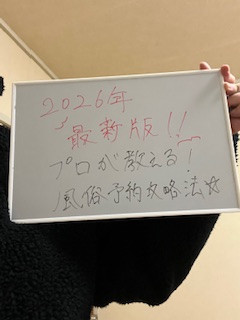 2026年
最新版!!
プロが教える!
風俗予約攻略法☆